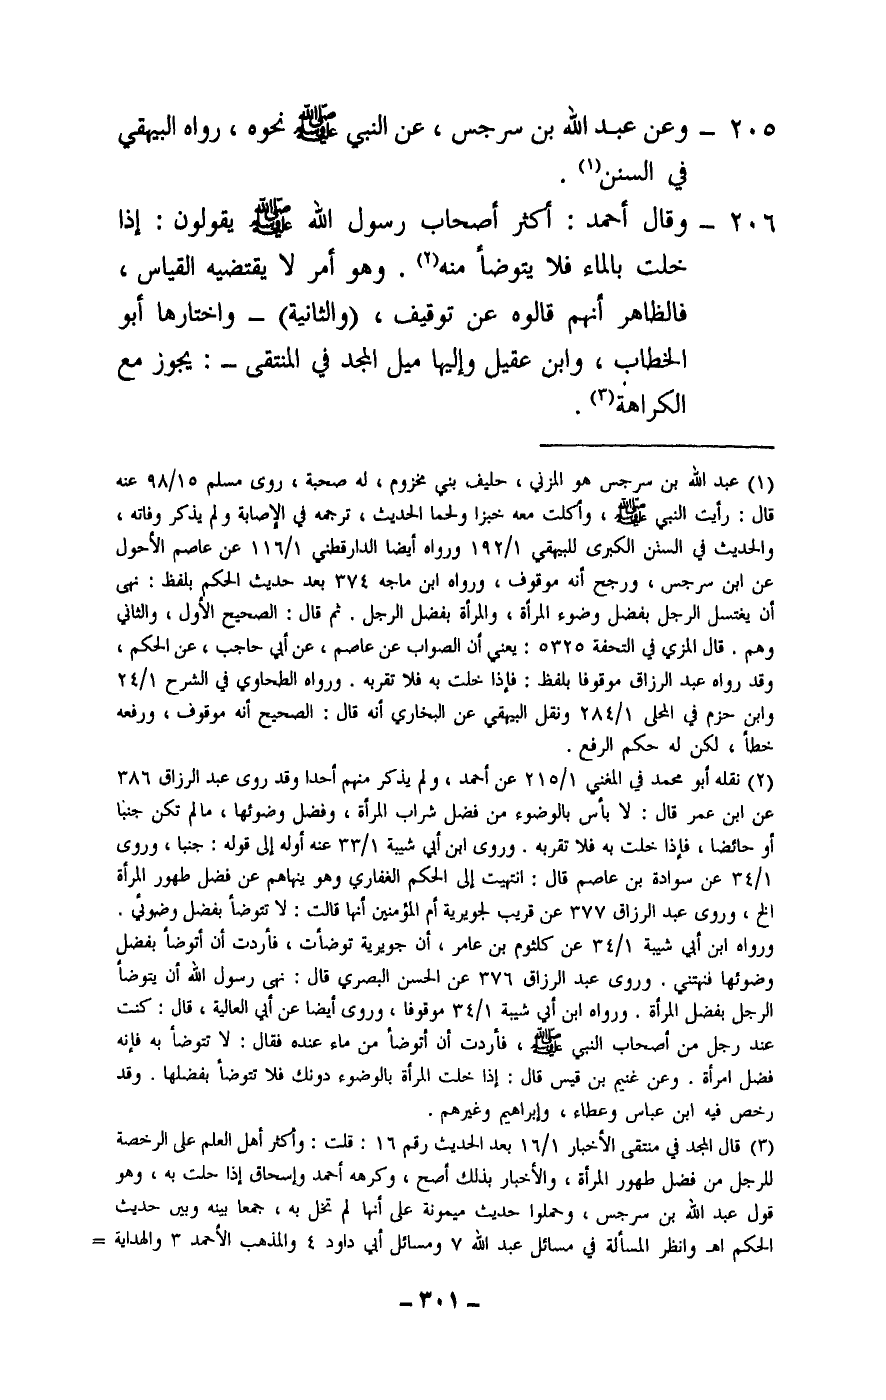 ٢٠٥ – وعن عبد الله بن سرجس ، عن النبي ﷺ نحوه ، رواه البيهقي
في السنن(١) .
٢٠٦ – وقال أحمد : أكثر أصحاب رسول الله ﷺ يقولون : إذا
خلت بالماء فلا يتوضأ منه(٢) . وهو أمر لا يقتضيه القياس ،
فالظاهر أنهم قالوه عن توقيف ، (والثانية) – واختارها أبو
الخطاب ، وابن عقيل وإليها ميل المجد في المنتقى – : يجوز مع
الكراهة(٣) .
(١) عبد الله بن سرجس هو المزني ، حليف بني مخزوم ، له صحبة ، روى مسلم ٩٨/١٥ عنه
قال : رأيت النبي ﷺ ، وأكلت معه خبزا ولحما الحديث ، ترجمه في الإصابة ولم يذكر وفاته ،
والحديث في السنن الكبرى للبيهقي ١٩٢/١ ورواه أيضا الدارقطني ١١٦/١ عن عاصم الأحول
عن ابن سرجس ، ورجح أنه موقوف ، ورواه ابن ماجه ٣٧٤ بعد حديث الحكم بلفظ : نهى
أن يغتسل الرجل بفضل وضوء المرأة ، والمرأة بفضل الرجل . ثم قال : الصحيح الأول ، والثاني
وهم . قال المزي في التحفة ٥٣٢٥ : يعني أن الصواب عن عاصم ، عن أبي حاجب ، عن الحكم ،
وقد رواه عبد الرزاق موقوفا بلفظ : فإذا خلت به فلا تقربه . ورواه الطحاوي في الشرح ٢٤/١
وابن حزم في المحلى ٢٨٤/١ ونقل البيهقي عن البخاري أنه قال : الصحيح أنه موقوف ، ورفعه
خطأ ، لكن له حكم الرفع .
(٢) نقله أبو محمد في المغني ٢١٥/١ عن أحمد ، ولم يذكر منهم أحدا وقد روى عبد الرزاق ٣٨٦
عن ابن عمر قال : لا بأس بالوضوء من فضل شراب المرأة ، وفضل وضوئها ، مالم تكن جنبا
أو حائضا ، فإذا خلت به فلا تقربه . وروى ابن أبي شيبة ٣٣/١ عنه أوله إلى قوله : جنبا ، وروى
٣٤/١ عن سوادة بن عاصم قال : انتهيت إلى الحكم الغفاري وهو ينهاهم عن فضل طهور المرأة
الخ ، وروى عبد الرزاق ٣٧٧ عن قريب لجويرية أم المؤمنين أنها قالت : لا تتوضأ بفضل وضوئي .
ورواه ابن أبي شيبة ٣٤/١ عن كلثوم بن عامر ، أن جويرية توضأت ، فأردت أن أتوضأ بفضل
وضوئها فنهتني . وروى عبد الرزاق ٣٧٦ عن الحسن البصري قال : نهى رسول الله أن يتوضأ
الرجل بفضل المرأة . ورواه ابن أبي شيبة ٣٤/١ موقوفا ، وروى أيضا عن أبي العالية ، قال : كنت
عند رجل من أصحاب النبي ﷺ ، فأردت أن أتوضأ من ماء عنده فقال : لا تتوضأ به فإنه
فضل امرأة . وعن غنيم بن قيس قال : إذا خلت المرأة بالوضوء دونك فلا تتوضأ بفضلها . وقد
رخص فيه ابن عباس وعطاء ، وإبراهيم وغيرهم .
(٣) قال المجد في منتقى الأخبار ١٦/١ بعد الحديث رقم ١٦ : قلت : وأكثر أهل العلم على الرخصة
للرجل من فضل طهور المرأة ، والأخبار بذلك أصح ، وكرهه أحمد وإسحاق إذا خلت به ، وهو
قول عبد الله بن سرجس ، وحملوا حديث ميمونة على أنها لم تخل به ، جمعا بينه وبين حديث
الحكم اهـ وانظر المسألة في مسائل عبد الله ٧ ومسائل أبي داود ٤ والمذهب الأحمد ٣ والهداية =
– ٣٠١ –